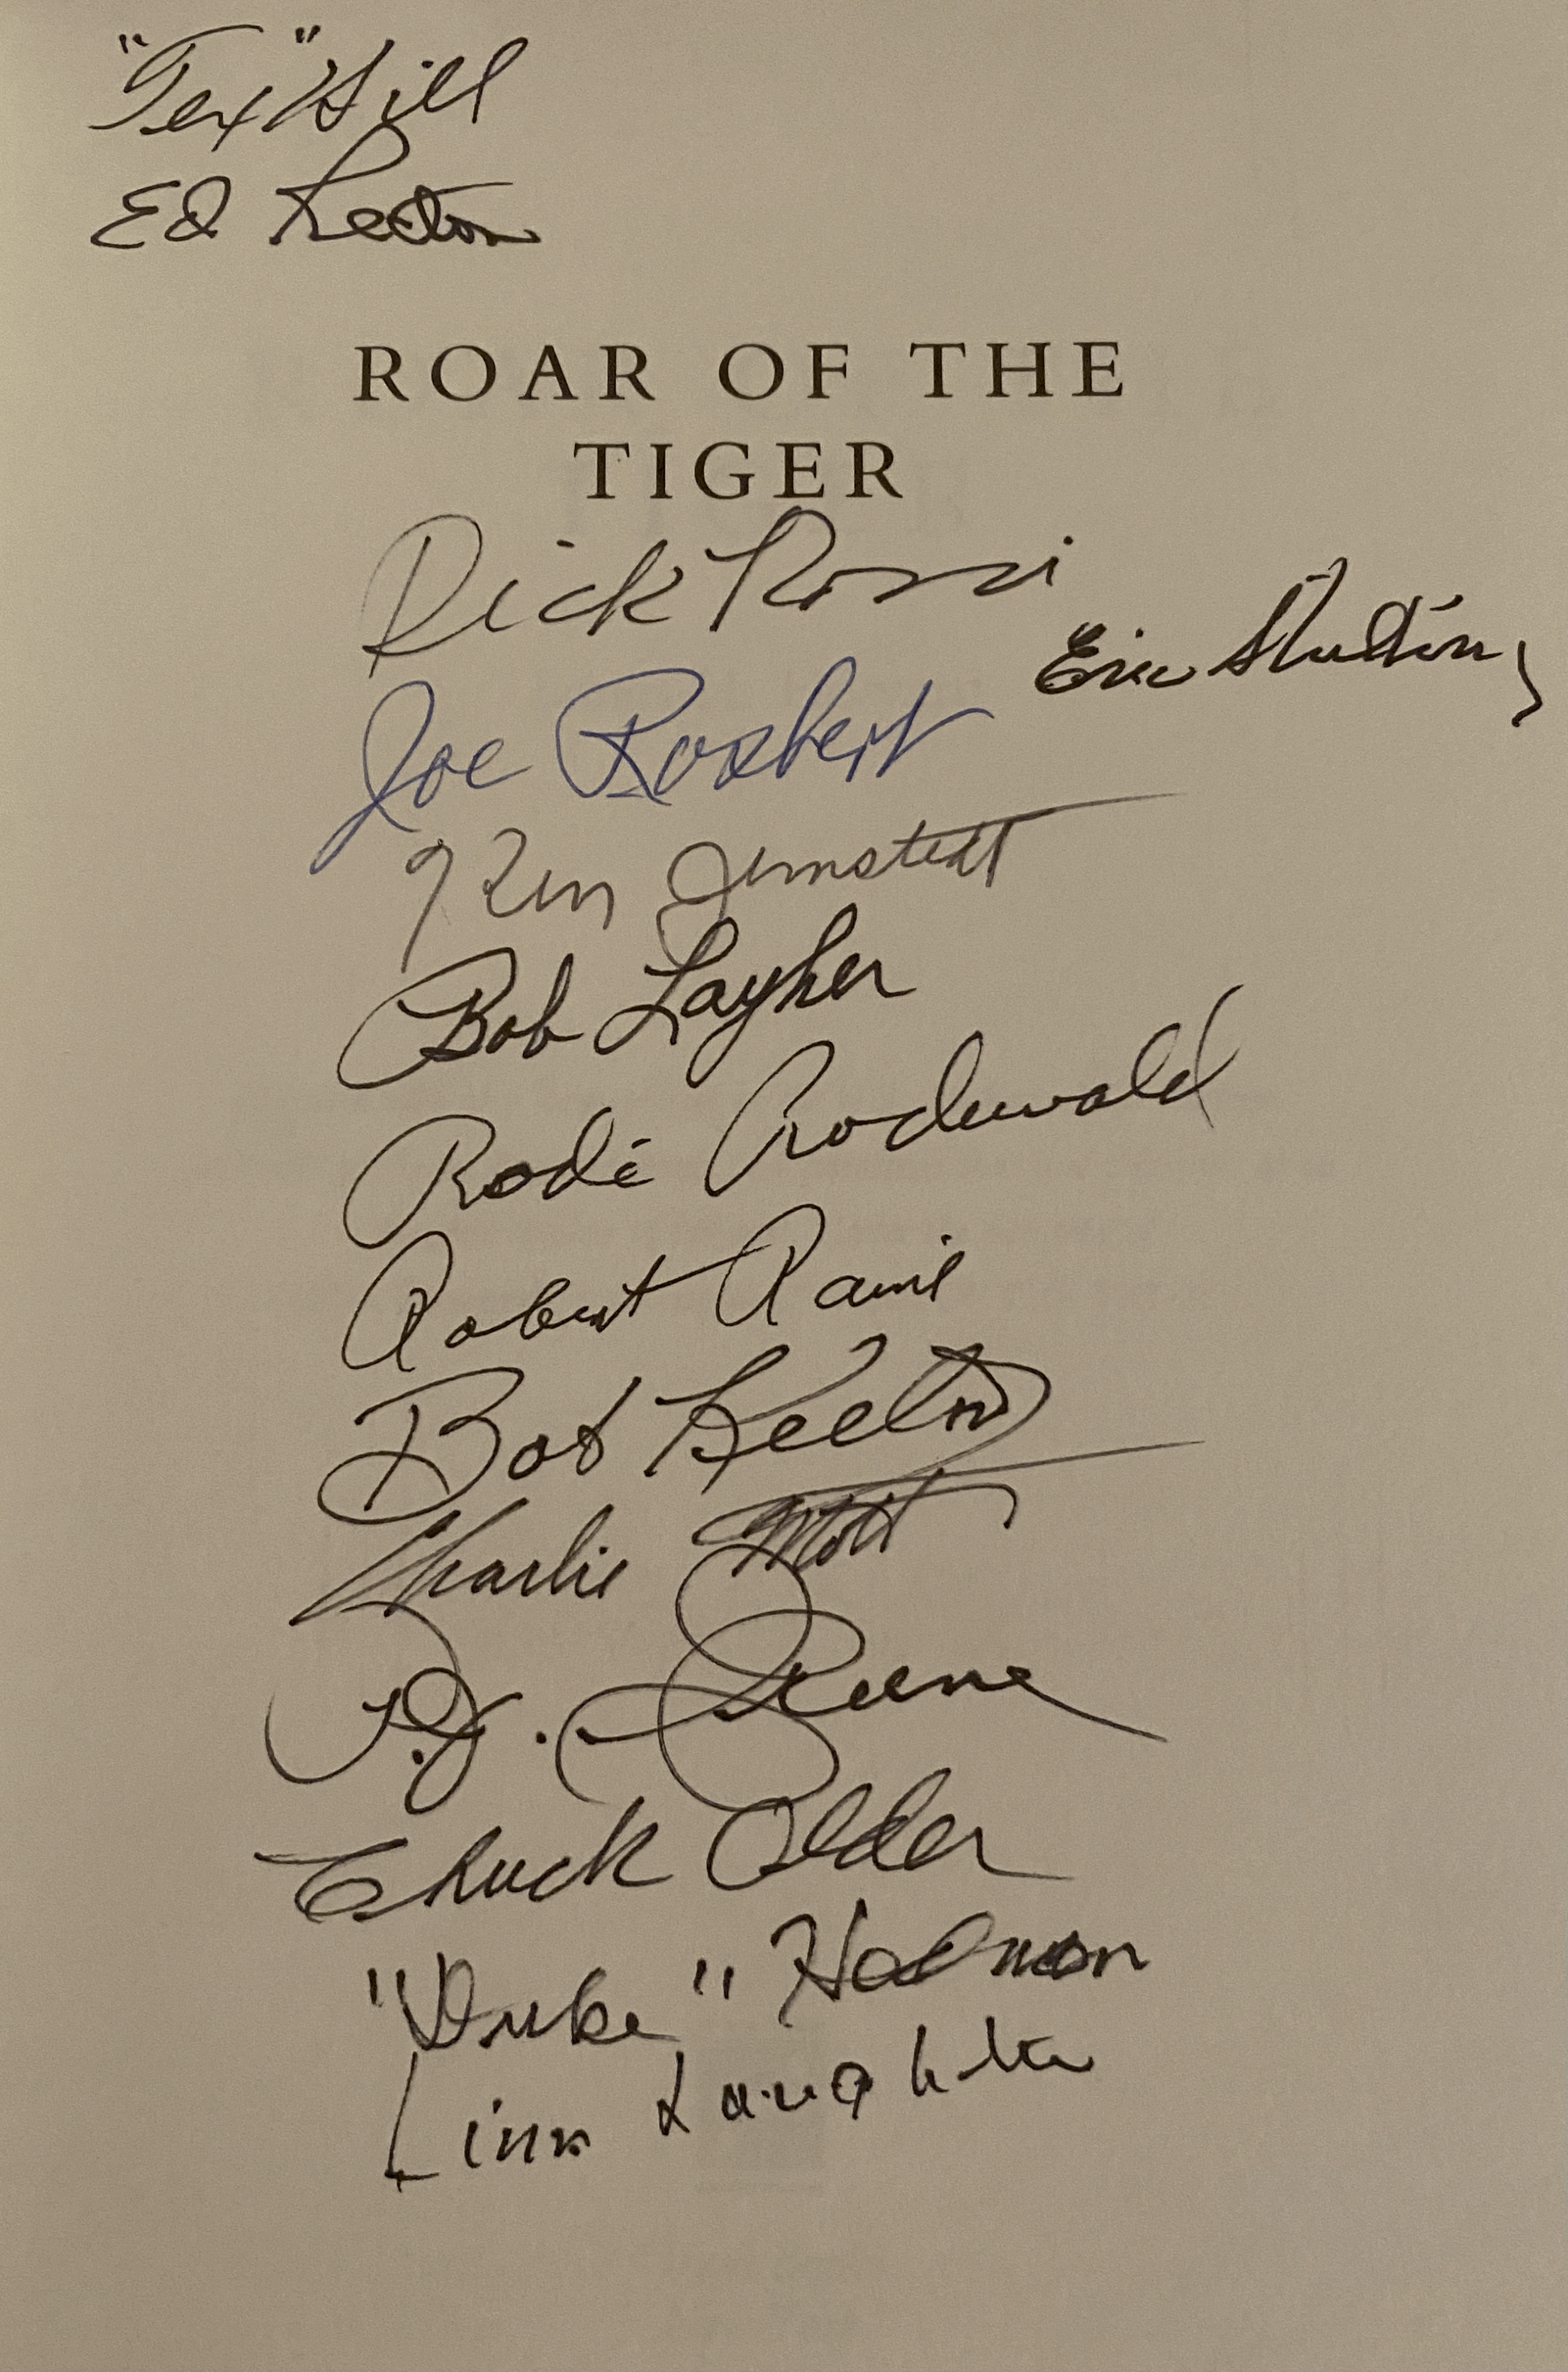 "Tex" Hill
Ed Rector
ROAR OF THE
TIGER
Dick Rossi
Eric Shilling
Joe Rosbert
Ken Jernstedt
Bob Layher
Rode Rodewald
Robert Raine
Bob Keeton
Charlie Mott
P.J. Greene
Chuck Older
"Duke" Hedman
Linn Laughlin